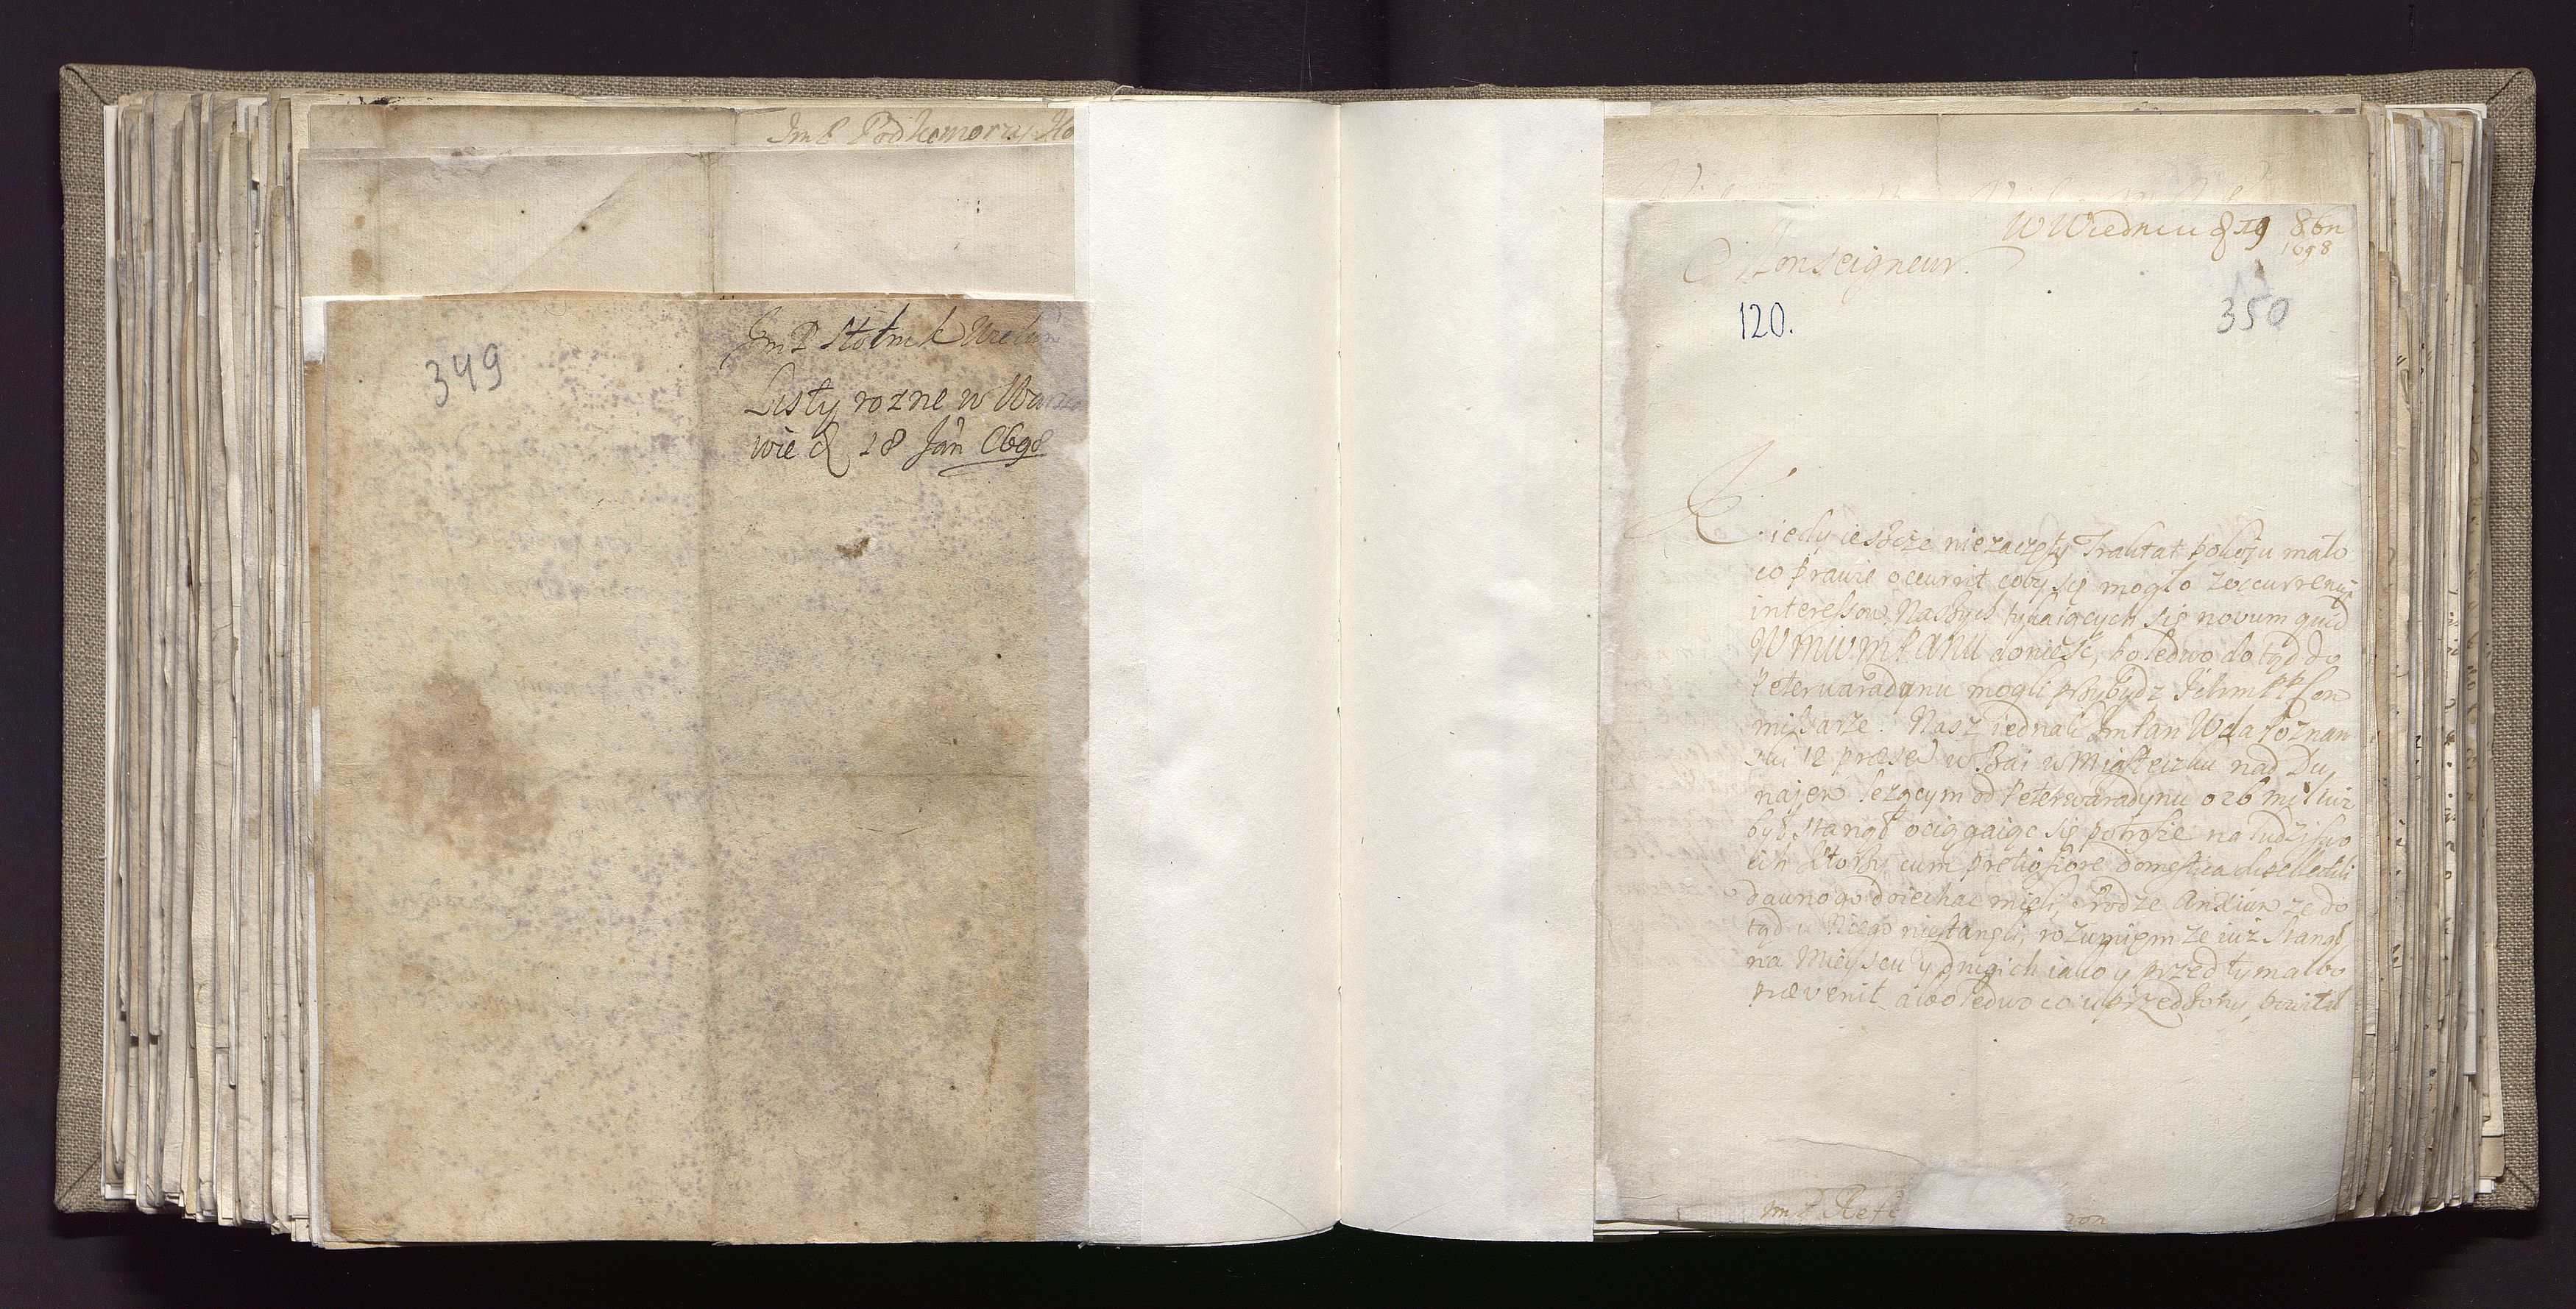 Im P Podkomorzy Ho
349
Im P Stolnik Wielun
Listy rozne w Warza
wie d 18 Jan 1698
W Wiedniu d 19 8bn
1698
Monseigneur.
120.
350
Kiedy ieszcze niezaczęty Traktat pokoju mało
co prawie occurrit coby się mogło z occurrencyi
interessow Naszych tykaiących się novum quid
WMMPANU donieść, bo ledwo do tąd do
Peterwaradynu mogli przybydz Ichm PP Com
missarze. Nasz iednak Im Pan Wda Poznan
ski 12 præsen w Bai w Miasteczku nad Du
najem leżącym od Peterwaradynu o 26 mil iuż
był stanął ociągaiąc się potrosze na ludzi swo
ich ktorzy cum pretiosiore domestica
dawno go doiechac mieli, Srodze Anxius ze do
tąd u Niego niestanęli, rozumiem ze iuż stanął
na Mieyscu y drugich iako y przed tym albo
prævenit albo ledwo co uprzedzony, powitał
Im P Refe
ron